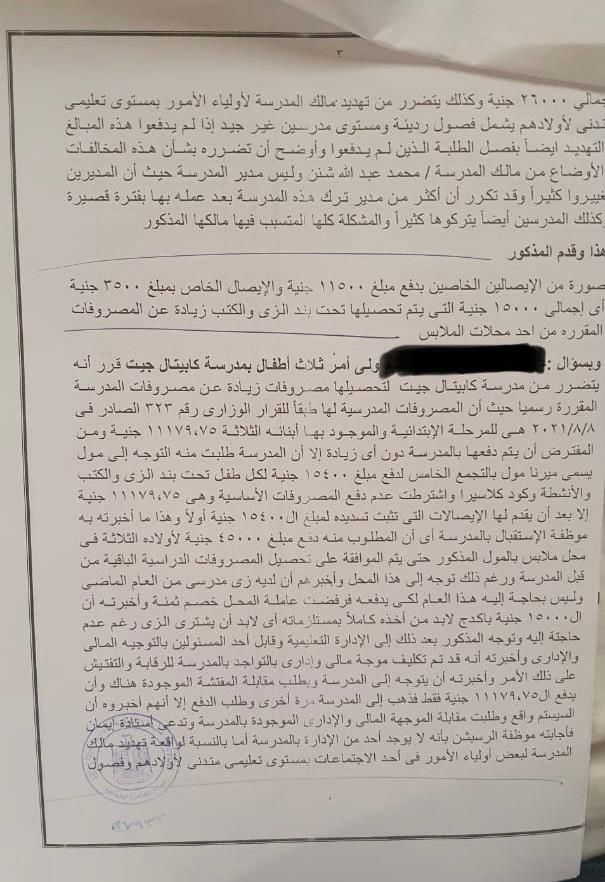 ٣
جمالي ٢٦٠٠٠ جنية وكذلك يتضرر من تهديد مالك المدرسة لأولياء الأمور بمستوى تعليمى
تدنى لأولادهم يشمل فصول رديئة ومستوى مدرسين غير جيد إذا لم يدفعوا هذه المبالغ
التهديد ايضاً بفصل الطلبة الذين لم يدفعوا وأوضح أن تضرره بشأن هذه المخالفات
الأوضاع من مالك المدرسة / محمد عبد الله شنن وليس مدير المدرسة حيث أن المديرين
تغييروا كثيراً وقد تكرر أن أكثر من مدير ترك هذه المدرسة بعد عمله بها بفترة قصيرة
كذلك المدرسين أيضاً يتركوها كثيراً والمشكلة كلها المتسبب فيها مالكها المذكور
هذا وقدم المذكور
صورة من الإيصالين الخاصين بدفع مبلغ ١١٥٠٠ جنية والإيصال الخاص بمبلغ ٣٥٠٠ جنية
أى إجمالي ١٥٠٠٠ جنية التى يتم تحصيلها تحت بند الزى والكتب زيادة عن المصروفات
المقرره من احد محلات الملابس
وبسؤال : ولى أمر ثلاث أطفال بمدرسة كابيتال جيت قرر أنه
يتضرر من مدرسة كابيتال جيت لتحصيلها مصروفات زيادة عن مصروفات المدرسة
المقررة رسميا حيث أن المصروفات المدرسية لها طبقاً للقرار الوزارى رقم ٣٢٣ الصادر فى
٢٠٢١/٨/٨ هى للمرحلة الإبتدائية والموجود بها أبنائه الثلاثة ١١١٧٩,٧٥ جنية ومن
المفترض أن يتم دفعها بالمدرسة دون أى زيادة إلا أن المدرسة طلبت منه التوجه إلى مول
يسمى ميرنا مول بالتجمع الخامس لدفع مبلغ ١٥٤٠٠ جنية لكل طفل تحت بند الزى والكتب
والأنشطة وكود كلاسيرا واشترطت عدم دفع المصروفات الأساسية وهى ١١١٧٩,٧٥ جنية
إلا بعد أن يقدم لها الإيصالات التى تثبت تسديده لمبلغ ال١٥٤٠٠ جنية أولاً وهذا ما أخبرته به
موظفة الإستقبال بالمدرسة أى أن المطلوب منه دفع مبلغ ٤٥٠٠٠ جنية لأولاده الثلاثة فى
محل ملابس بالمول المذكور حتى يتم الموافقة على تحصيل المصروفات الدراسية الباقية من
قبل المدرسة ورغم ذلك توجه إلى هذا المحل وأخبرهم أن لديه زى مدرسى من العام الماضى
وليس بحاجة إليه هذا العام لكى يدفعه فرفضت عاملة المحل خصم ثمنة وأخبرته أن
ال١٥٠٠٠ جنية باكدج لابد من أخذه كاملاً بمستلزماته أى لابد أن يشترى الزى رغم عدم
حاجتة إليه وتوجه المذكور بعد ذلك إلى الإدارة التعليمية وقابل أحد المسئولين بالتوجيه المالى
والإدارى وأخبرته أنه قد تم تكليف موجة مالى وإدارى بالتواجد بالمدرسة للرقابة والتفتيش
على ذلك الأمر وأخبرته أن يتوجه إلى المدرسة ويطلب مقابلة المفتشة الموجودة هناك وأن
يدفع ال١١١٧٩,٧٥ جنية فقط فذهب إلى المدرسة مرة أخرى وطلب الدفع إلا أنهم أخبروه أن
السيستم واقع وطلبت مقابلة الموجهة المالى والإدارى الموجودة بالمدرسة وتدعى أستاذة إيمان
فأجابته موظفة الرسبشن بأنه لا يوجد أحد من الإدارة بالمدرسة أما بالنسبة لواقعة تهديد مالك
المدرسة لبعض أولياء الأمور فى أحد الاجتماعات بمستوى تعليمى متدنى لأولادهم وفصول